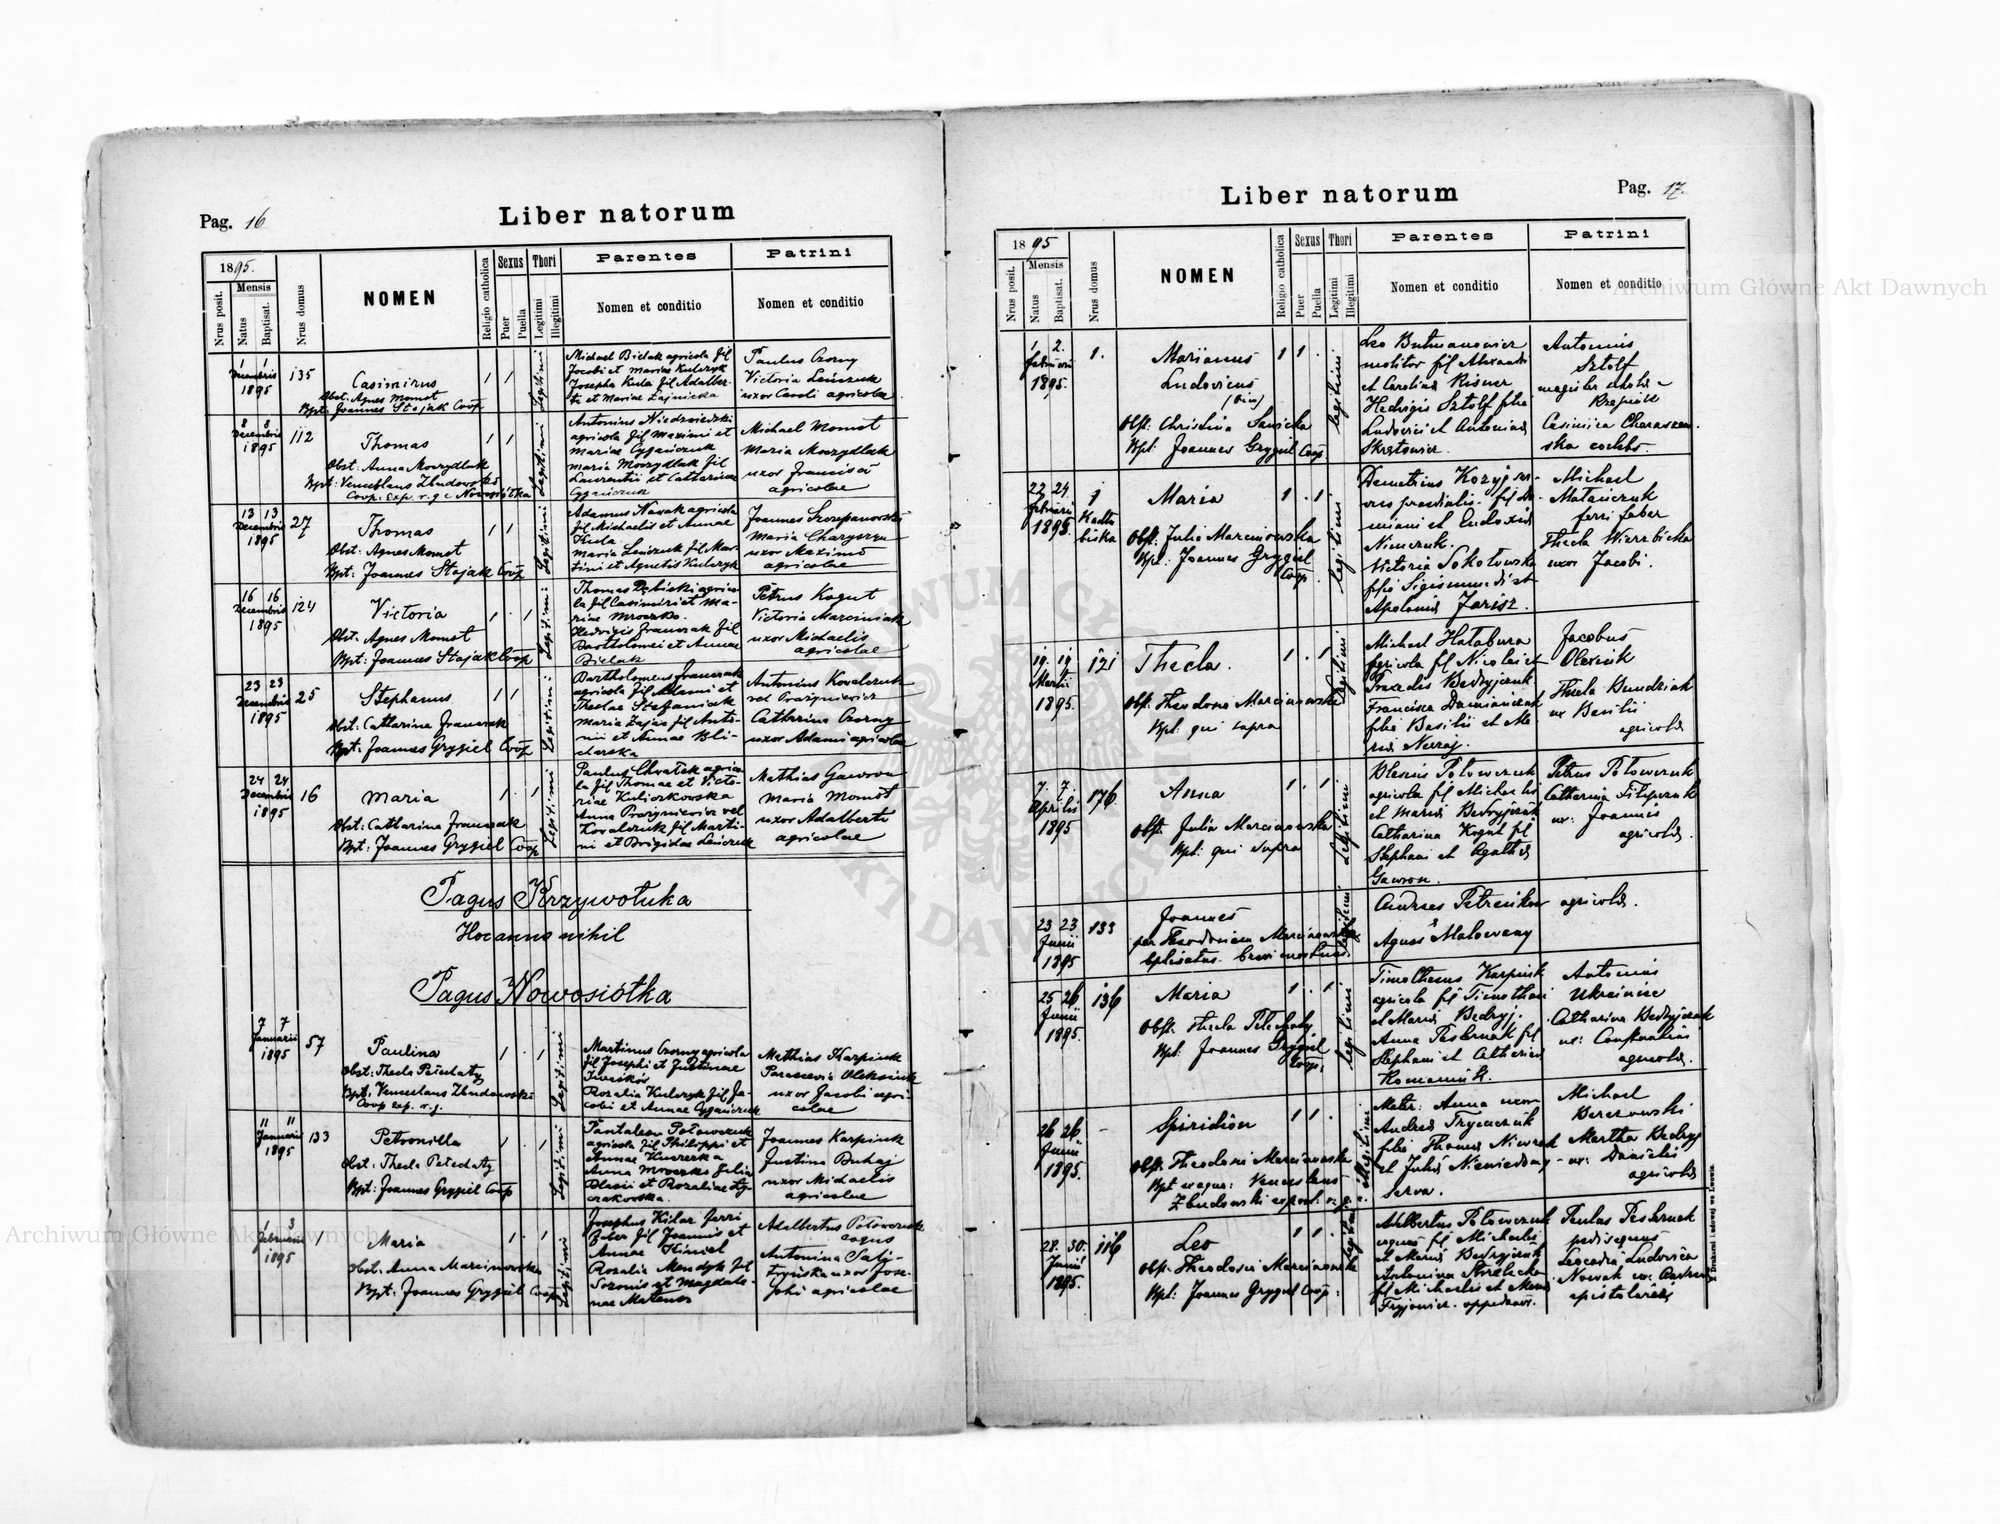 Pag. 16
Liber natorum
1895.
Nrus posit.
Mensis
Natus
Baptisat.
Nrus domus
NOMEN
Religio catholica
Sexus
Puer
Puella
Thori
Legitimi
Illegitimi
Parentes
Nomen et conditio
Patrini
Nomen et conditio
1 1
Decembris
1895
135
Casimirus
Obst: Agnes Momot
Bpt: Joannes Stojak Coop
1 1
Legitimi
Michael Bielak agricola fil
Jacobi et Mariae Kulczyk
Josepha Kula fil Adalber-
ti et Mariae Zajnicka
Paulus Czorny
Victoria Leńczuk
uxor Caroli agricolae
8 8
Decembris
1895
112
Thomas
Obst: Anna Moczydlak
Bpt: Venceslaus Zbudowski
Coop. exp. r. g. c Nowosiółka
1 1
Legitimi
Antonius Niedzwiedzki
agricola fil Maximi et
Mariae Cygańczuk
Maria Moczydlak fil
Laurentii et Catharinae
Cygańczuk
Michael Momot
Maria Moczydlak
uxor Francisci
agricolae
13 13
Decembris
1895
27
Thomas
Obst: Agnes Momot
Bpt: Joannes Stojak Coop
1 1
Legitimi
Adamus Nowak agricola
fil Michaelis et Annae
Kula
Maria Leńczuk fil Mar-
tini et Agnetis Kulczyk
Joannes Szczepanowski
Maria
uxor Maximi
agricolae
16 16
Decembris
1895
124
Victoria
Obst: Agnes Momot
Bpt: Joannes Stojak Coop
1 1
Legitimi
Thomas agrico-
la fil Casimiri et Ma-
riae Mroczko.
Hedvigis Franczak fil
Bartholomei et Annae
Bielak
Petrus Kogut
Victoria Marciniak
uxor Michaelis
agricolae
23 23
Decembris
1895
25
Stephanus
Obst: Catharina Franczak
Bpt: Joannes Grygiel Coop
1 1
Legitimi
Bartholomeus Franczak
agricola fil Adami et
Theclae Stefaniak
Maria Zajac fil Anto-
nii et Annae Bli-
charska
Antonius Kovalczuk
vel Prozyniewicz
Catharina Czorny
uxor Adami agricolae
24 24
Decembris
1895
16
Maria
Obst: Catharina Franczak
Bpt: Joannes Grygiel Coop
1 1
Legitimi
Paulus Chvałek agrico-
la fil Thomae et Victo-
riae Kuliczkowska
Anna Prozyniewicz vel
Kovalczuk fil Marti-
ni et Brigidae Leńczuk
Mathias Gawron
Maria Momot
uxor Adalberti
agricolae
Pagus Krzywołuka
Hoc anno nihil
Pagus Nowosiółka
7 7
Januarii
1895
57
Paulina
Obst: Thecla Pełechaty
Bpt: Venceslaus Zbudowski
Coop exp. r. g.
1 1
Legitimi
Martinus Czorny agricola
fil Josephi et Justinae
Iwasków
Rozalia Kulczyk fil Ja-
cobi et Annae Cygańczuk
Mathias Karpiuk
Parascevia Oleksiuk
uxor Jacobi agri-
colae
11 11
Januarii
1895
133
Petronilla
Obst: Thecla Pełechaty
Bpt: Joannes Grygiel Coop
1 1
Legitimi
Pantaleon Połowczuk
agricola fil Philippi et
Annae Kuczerka
Anna Mroczko filia
Blasii et Rozaliae Ły-
czakowska.
Joannes Karpiuk
Justina Buhaj
uxor Michaelis
agricolae
1 3
Februarii
1895
1
Maria
Obst: Anna Marcinowska
Bpt: Joannes Grygiel Coop
1 1
Legitimi
Josephus Kilar ferri
faber fil Joannis et
Annae Kinsel
Rozalia Mendyk fil
et Magdale-
nae
Adalbertus Połowczuk
coquus
Antonina
uxor Jose-
phi agricolae
Pag. 17.
Liber natorum
1895
Nrus posit.
Mensis
Natus
Baptisat.
Nrus domus
NOMEN
Religio catholica
Sexus
Puer
Puella
Thori
Legitimi
Illegitimi
Parentes
Nomen et conditio
Patrini
Nomen et conditio
1 2.
Februarii
1895.
1.
Marianus
Ludovicus
(bin)
Obst: Christina Sawicka
Bpt: Joannes Grygiel Coop
1 1
legitimi
Leo Butmanowicz
molitor fil Alexandri
et Carolinae Risner
Hedvigis Sztolf filia
Ludovici et Antoniae
Skrętowicz.
Antonius
Sztolf
magister
Casimira Charaszew-
ska
22 24
Februarii
1895.
1
Maria
Obst: Julia Marcinowska
Bpt: Joannes Grygiel
Coop
1 1
legitimi
Demetrius Kozyj ser-
vus praedialis fil Da-
miani et Eudoxiae
Niemczuk.
Victoria Sokołowska
filia Sigismundi et
Apoloniae Jarisz.
Michael
Matańczuk
ferri faber
Thecla Wierzbicka
uxor Jacobi.
19 19
Martii
1895.
121
Thecla.
Obst: Theodora Marcinowska
Bpt: qui supra
1 1
legitimi
Michael Hałabura
agricola fil Nicolai et
Praxedis Bedryjczuk
Francisca Damiańczuk
filia Basilii et Ma-
riae
Jacobus
Olexiuk
Thecla Bundziak
ux Basilii
agricolae
7 7.
Aprilis
1895
176.
Anna
Obst: Julia Marcinowska
Bpt: qui supra
1 1
legitimi
Blasius Połowczuk
agricola fil Michaelis
et Mariae Bedryjczuk
Catharina Kogut fil
Stephani et Agathae
Gawron.
Petrus Połowczuk
Catharina Filipczuk
ux: Joannis
agricolae.
23 23
Junii
1895
133
Joannes
per Theodosiam Marcinowska
bptisatus brevi mortuus.
legitimi
Andreas Petreńkow
Agnes Malowany
agricolae.
25 26
Junii
1895.
136
Maria
Obst: Thecla Pełechaty
Bpt: Joannes Grygiel
Coop.
1 1
legitimi
Timotheus Karpiuk
agricola fil Timothei
et Mariae Bedryj.
Anna Pasternak fil
Stephani et Catharinae
Romaniuk.
Antonius
Ukrainiec
Catharina Bedryjczuk
ux: Constantini
agricolae.
26 26
Junii
1895.
-
Spiridion
Obst: Theodosia Marcinowska
Bpt ex aqua: Venceslaus
Zbudowski expost. r. g.
1 1
Illegitimi
Mater: Anna uxor
Andreae Tryńczuk
filia Thomae
et Juliae
serva.
Michael
Berezowski
Martha Bedryj
ux: Danielis
agricolae
28. 30.
Junii
1895.
116
Leo
Obst: Theodosia Marcinowska
Bpt: Joannes Grygiel Coop:
1 1
legitimi
Adalbertus Połowczuk
coquus fil Michaelis
et Mariae Bedryjczuk
Antonina
fil Michaelis et Mariae
Paulus Pasternak
pedisequus
Leocadia Ludovica
Nowak ux:
Z Drukarni Ludowej we Lwowie.
Archiwum Główne Akt Dawnych
Archiwum Główne Akt Dawnych
ARCHIWUM GŁÓWNE AKT DAWNYCH